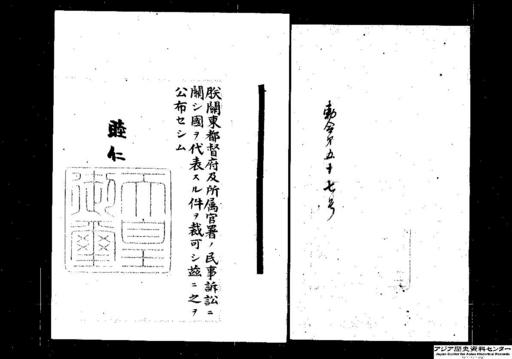 勅令第五十七号
朕關東都督府及所属官署ノ民事訴訟ニ
關シ國ヲ代表スル件ヲ裁可シ茲ニ之ヲ
公布セシム
睦仁
天皇
御璽
アジア歴史資料センター
Japan Center for Asian Historical Records